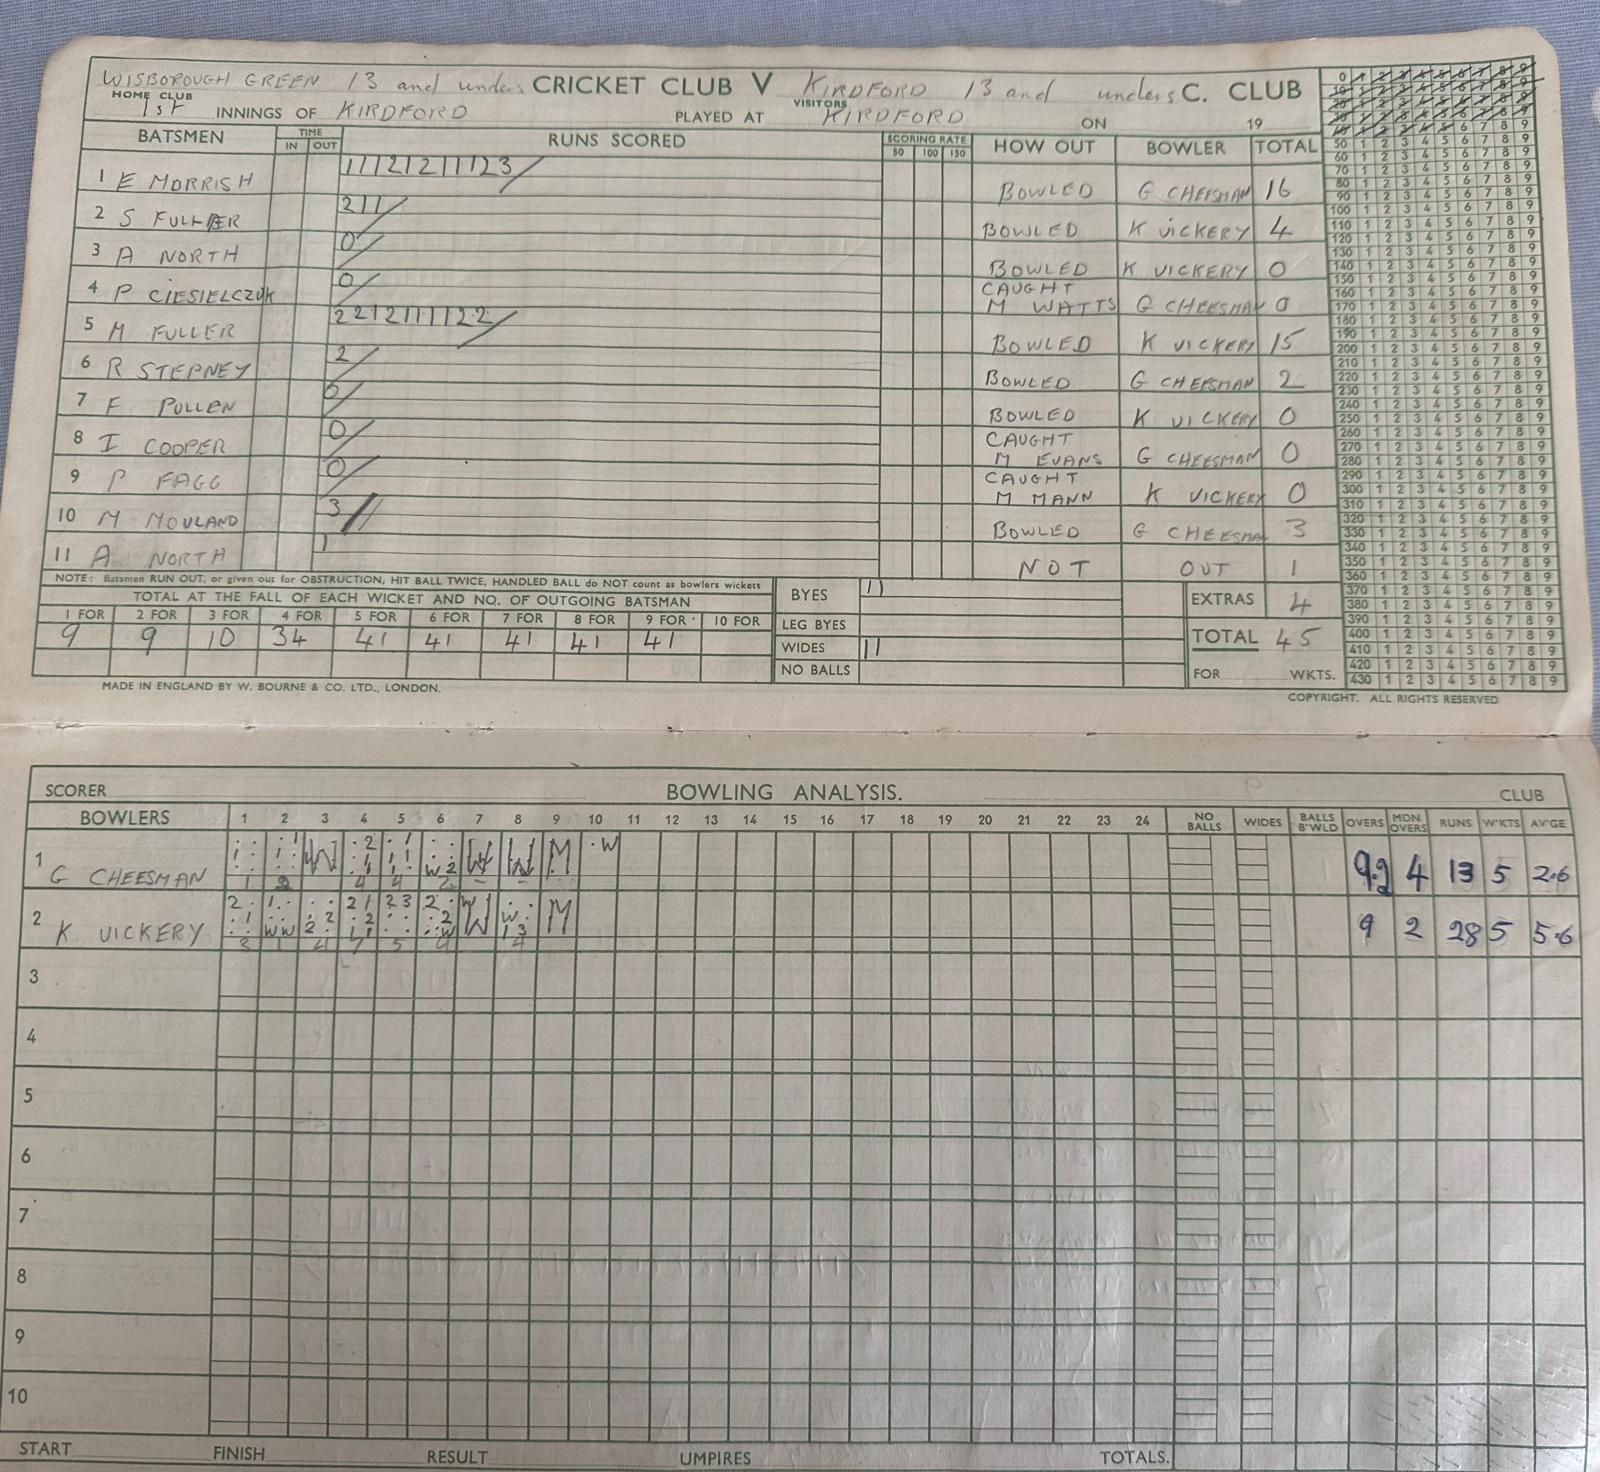 WISBOROUGH GREEN 13 and unders CRICKET CLUB V KIRDFORD 13 and unders C. CLUB
HOME CLUB VISITORS
1st INNINGS OF KIRDFORD PLAYED AT KIRDFORD ON 19
BATSMEN TIME IN OUT RUNS SCORED SCORING RATE 50 100 150 HOW OUT BOWLER TOTAL
1 E MORRISH 11121211123 BOWLED G CHEESMAN 16
2 S FULLER 211 BOWLED K VICKERY 4
3 A NORTH 0 BOWLED K VICKERY 0
4 P CIESIELCZUK 0 CAUGHT M WATTS G CHEESMAN 0
5 M FULLER 2212111122 BOWLED K VICKERY 15
6 R STEPNEY 2 BOWLED G CHEESMAN 2
7 F PULLEN 0 BOWLED K VICKERY 0
8 I COOPER 0 CAUGHT M EVANS G CHEESMAN 0
9 P FAGG 0 CAUGHT M MANN K VICKERY 0
10 M MOULAND 3 BOWLED G CHEESMAN 3
11 A NORTH 1 NOT OUT 1
NOTE: Batsmen RUN OUT, or given out for OBSTRUCTION, HIT BALL TWICE, HANDLED BALL do NOT count as bowlers wickets
TOTAL AT THE FALL OF EACH WICKET AND NO. OF OUTGOING BATSMAN
1 FOR 2 FOR 3 FOR 4 FOR 5 FOR 6 FOR 7 FOR 8 FOR 9 FOR 10 FOR
9 9 10 34 41 41 41 41 41
BYES 11
LEG BYES
WIDES 11
NO BALLS
EXTRAS 4
TOTAL 45
FOR WKTS.
MADE IN ENGLAND BY W. BOURNE & CO. LTD., LONDON.
COPYRIGHT. ALL RIGHTS RESERVED
SCORER BOWLING ANALYSIS. CLUB
BOWLERS 1 2 3 4 5 6 7 8 9 10 11 12 13 14 15 16 17 18 19 20 21 22 23 24 NO BALLS WIDES BALLS B'WLD OVERS MDN OVERS RUNS W'KTS AV'GE
1 G CHEESMAN 9.2 4 13 5 2.6
2 K VICKERY 9 2 28 5 5.6
3
4
5
6
7
8
9
10
START FINISH RESULT UMPIRES TOTALS.